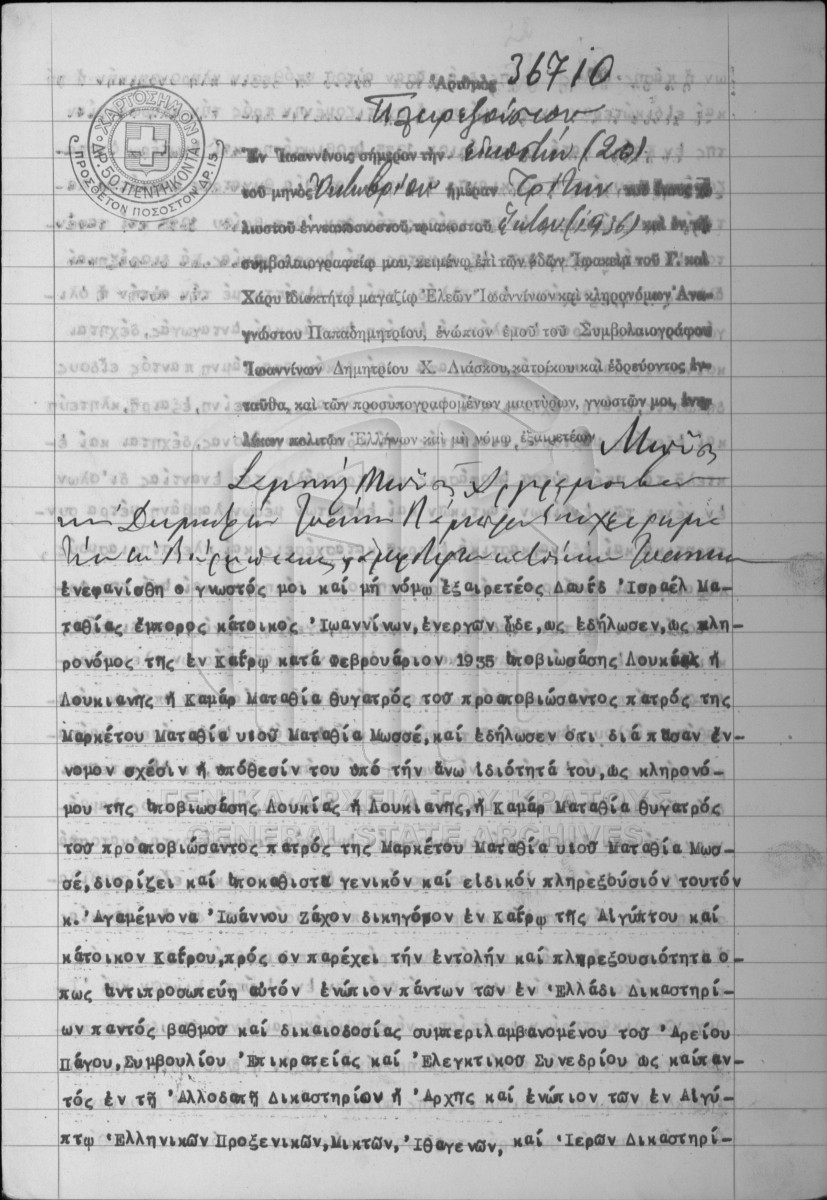 ΧΑΡΤΟΣΗΜΟΝ
ΔΡ. 50. ΠΕΝΤΗΚΟΝΤΑ
ΠΡΟΣΘΕΤΟΝ ΠΟΣΟΣΤΟΝ ΔΡ. 15
Ἀριθμός 36710
Πληρεξούσιον
Ἐν Ἰωαννίνοις σήμερον τὴν εἰκοστήν (20)
τοῦ μηνὸς Ὀκτωβρίου ἡμέραν Τρίτην τοῦ ἔτους χι-
λιοστοῦ ἐννεακοσιοστοῦ τριακοστοῦ ἕκτου (1936) καὶ ἐν τῷ
συμβολαιογραφείῳ μου, κειμένῳ ἐπὶ τῶν ὁδῶν Ἰωακεὶμ τοῦ Γ. καὶ
Χάρυ ἰδιοκτήτῳ μαγαζίῳ Ἐλεῶν Ἰωαννίνων καὶ κληρονόμων Ἀνα-
γνώστου Παπαδημητρίου, ἐνώπιον ἐμοῦ τοῦ Συμβολαιογράφου
Ἰωαννίνων Δημητρίου Χ. Λιάσκου, κατοίκου καὶ ἑδρεύοντος ἐν-
ταῦθα, καὶ τῶν προσυπογραφομένων μαρτύρων, γνωστῶν μοι, ἐνη-
λίκων πολιτῶν Ἑλλήνων καὶ μὴ νόμῳ, ἐξαιρετέων
ἐνεφανίσθη ὁ γνωστός μοι καί μή νόμῳ ἐξαιρετέος Δαυΐδ Ἰσραέλ Μα-
ταθίας ἔμπορος κάτοικος Ἰωαννίνων, ἐνεργῶν ᾧδε, ὡς ἐδήλωσεν, ὡς κλη-
ρονόμος τῆς ἐν Καΐρῳ κατά Φεβρουάριον 1935 ἀποβιωσάσης Λουκίας ἤ
Λουκιανῆς ἤ Καμάρ Ματαθία θυγατρός τοῦ προαποβιώσαντος πατρός της
Μαρκέτου Ματαθία υἱοῦ Ματαθία Μωσσέ, καί ἐδήλωσεν ὅτι διά πᾶσαν ἔν-
νομον σχέσιν ἤ ὑπόθεσίν του ὑπό τήν ἄνω ἰδιότητά του, ὡς κληρονό-
μου τῆς ἀποβιωσάσης Λουκίας ἤ Λουκιανῆς, ἤ Καμάρ Ματαθία θυγατρός
τοῦ προαποβιώσαντος πατρός της Μαρκέτου Ματαθία υἱοῦ Ματαθία Μωσ-
σέ, διορίζει καί ἀποκαθιστᾶ γενικόν καί εἰδικόν πληρεξούσιόν τουτόν
κ. Ἀγαμέμνονα Ἰωάννου Ζάχον δικηγόρον ἐν Καΐρῳ τῆς Αἰγύπτου καί
κάτοικον Καΐρου, πρός ὅν παρέχει τήν ἐντολήν καί πληρεξουσιότητα ὅ-
πως ἀντιπροσωπεύῃ αὐτόν ἐνώπιον πάντων τῶν ἐν Ἑλλάδι Δικαστηρί-
ων παντός βαθμοῦ καί δικαιοδοσίας συμπεριλαμβανομένου τοῦ Ἀρείου
Πάγου, Συμβουλίου Ἐπικρατείας καί Ἐλεγκτικοῦ Συνεδρίου ὡς καί παν-
τός ἐν τῇ Ἀλλοδαπῇ Δικαστηρίου ἤ Ἀρχῆς καί ἐνώπιον τῶν ἐν Αἰγύ-
πτῳ Ἑλληνικῶν Προξενικῶν, Μικτῶν, Ἰθαγενῶν, καί Ἱερῶν Δικαστηρί-
ΓΕΝΙΚΑ ΑΡΧΕΙΑ ΤΟΥ ΚΡΑΤΟΥΣ
GENERAL STATE ARCHIVES